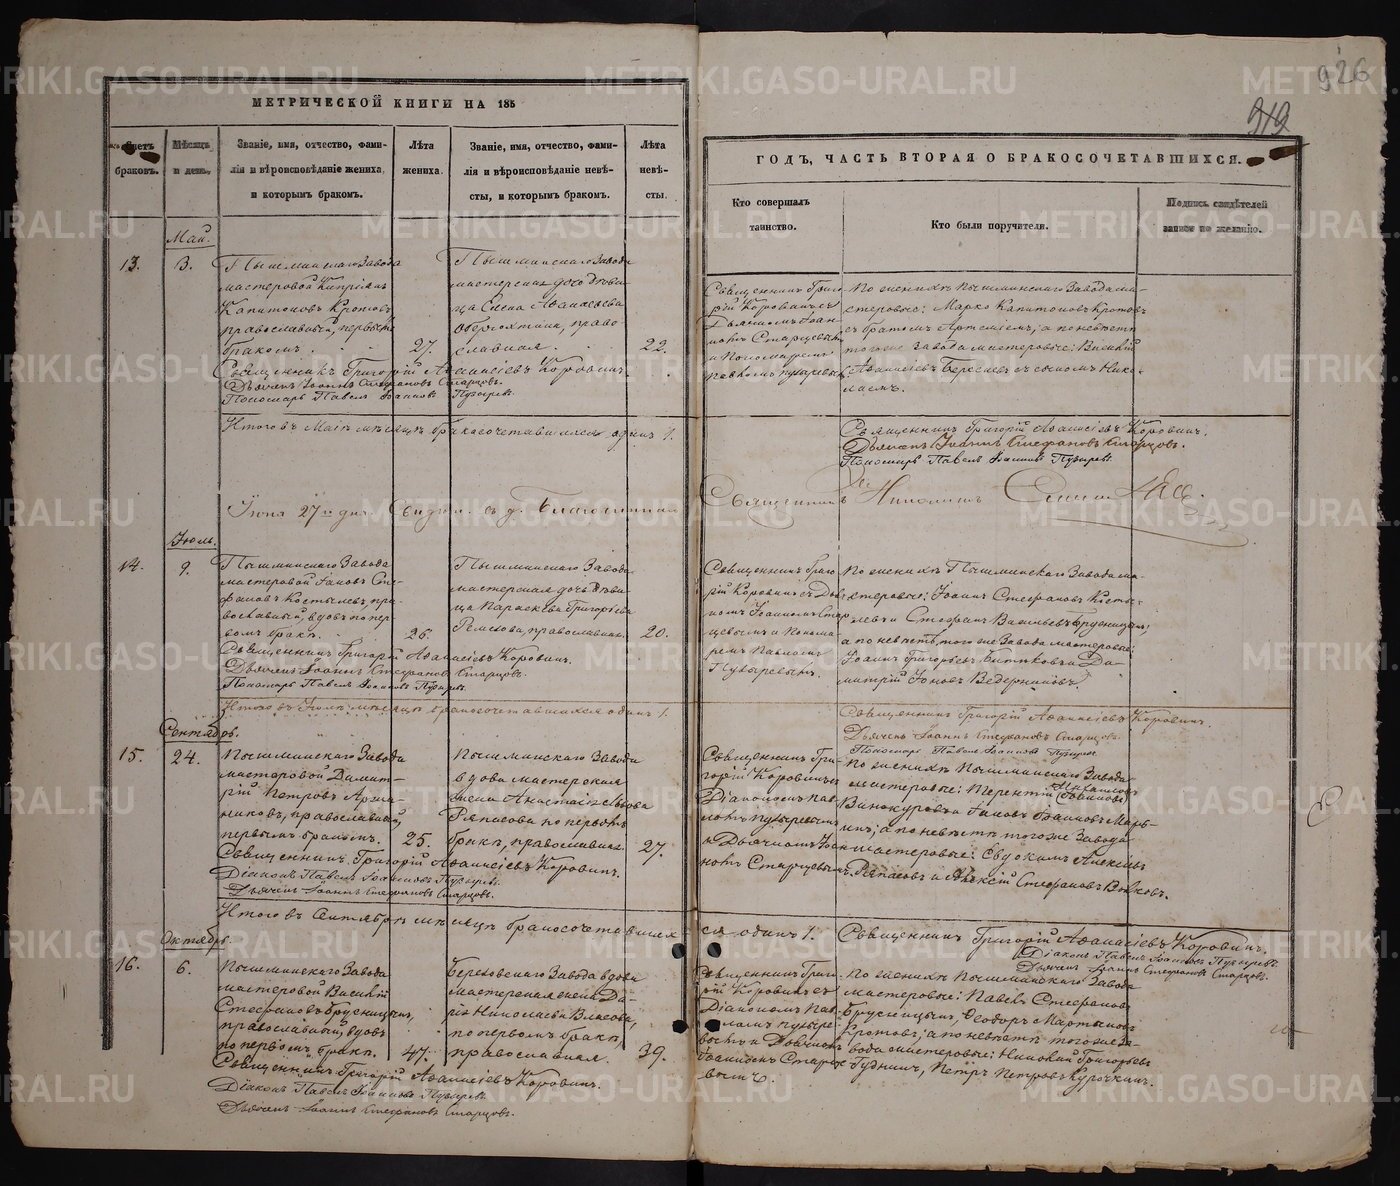 926
919
МЕТРИЧЕСКОЙ КНИГИ НА 185
Счетъ браковъ.
Мѣсяцъ и день.
Званіе, имя, отчество, фами-
лія и вѣроисповѣданіе жениха,
и которымъ бракомъ.
Лѣта
жениха.
Званіе, имя, отчество, фами-
лія и вѣроисповѣданіе невѣ-
сты, и которымъ бракомъ.
Лѣта
невѣ-
сты.
ГОДЪ, ЧАСТЬ ВТОРАЯ О БРАКОСОЧЕТАВШИХСЯ.
Кто совершалъ
таинство.
Кто были поручители.
Подпись свидѣтелей
записи по желанію.
Май.
13.
3.
Пышминскаго Завода
мастеровой Кипріянъ
Капитоновъ Кротовъ
православный, первымъ
бракомъ.
27.
Пышминскаго Завода
мастерская дочь дѣви-
ца Елена Аѳанасьева
православная.
22.
Священникъ Григо-
рій Коровинъ съ
Дьячкомъ Іоан-
номъ Старцевымъ
и Пономаремъ
Павломъ Пузыревымъ
По женихѣ Пышминскаго Завода ма-
стеровые: Марко Капитоновъ Кротовъ
съ братомъ Артеміемъ; а по невѣстѣ
того же завода мастеровые: Василій
Аѳанасіевъ съ сыномъ Нико-
лаемъ.
Священникъ Григорій Аѳанасіевъ Коровинъ.
Дьячекъ Іоаннъ Стефановъ Старцовъ.
Пономарь Павелъ Іоанновъ Пузыревъ.
Итого въ Маѣ мѣсяцѣ бракосочетавшихся одинъ 1.
Священникъ Григорій Аѳанасіевъ Коровинъ.
Дьячекъ Іоаннъ Стефановъ Старцовъ.
Пономарь Павелъ Іоанновъ Пузыревъ.
Іюня 27го дня. Благочинный
Священникъ Николай
Іюль.
14.
9.
Пышминскаго Завода
мастеровой Іаковъ Сте-
фановъ Костылевъ пра-
вославный, вдовъ по пер-
вомъ бракѣ.
26.
Пышминскаго Завода
мастерская дочь дѣви-
ца Параскева Григорьева
Ремезова, православная.
20.
Священникъ Григо-
рій Коровинъ съ Дьяч-
комъ Іоанномъ Стар-
цевымъ и Понома-
ремъ Павломъ
Пузыревымъ.
По женихѣ Пышминскаго Завода ма-
стеровые: Іоаннъ Стефановъ Косты-
левъ и Стефанъ Васильевъ Брусницынъ;
а по невѣстѣ, того же Завода мастеровые:
Іоаннъ Григорьевъ Битковъ и Ди-
митрій Іоновъ Ведерниковъ.
Священникъ Григорій Аѳанасіевъ Коровинъ.
Дьячекъ Іоаннъ Стефановъ Старцовъ.
Пономарь Павелъ Іоанновъ Пузыревъ.
Итого въ Іюлѣ мѣсяцѣ бракосочетавшихся одинъ 1.
Священникъ Григорій Аѳанасіевъ Коровинъ.
Дьячекъ Іоаннъ Стефановъ Старцовъ.
Пономарь Павелъ Іоанновъ Пузыревъ.
Сентябрь.
15.
24.
Пышминскаго Завода
мастеровой Димит-
рій Петровъ
православный,
первымъ бракомъ.
25.
Пышминскаго Завода
вдова мастерская
жена Анастасія Львова
Ряпасова по первомъ
бракѣ, православная.
27.
Священникъ Гри-
горій Коровинъ съ
Діакономъ Пав-
ломъ Пузыревымъ
и Дьячкомъ Іоан-
номъ Старцевымъ.
По женихѣ Пышминскаго Завода
мастеровые: Терентій Іоанновъ
Винокуровъ и Іаковъ Іоанновъ
а по невѣстѣ того же Завода
мастеровые: Евдокимъ Алексѣевъ
Ряпасовъ и Алексій Стефановъ Волковъ.
Священникъ Григорій Аѳанасіевъ Коровинъ.
Діаконъ Павелъ Іоанновъ Пузыревъ.
Дьячекъ Іоаннъ Стефановъ Старцовъ.
Итого въ Сентябрѣ мѣсяцѣ бракосочетавших-
ся одинъ 1.
Священникъ Григорій Аѳанасіевъ Коровинъ.
Діаконъ Павелъ Іоанновъ Пузыревъ.
Дьячекъ Іоаннъ Стефановъ Старцовъ.
Октябрь.
16.
6.
Пышминскаго Завода
мастеровой Василій
Стефановъ Брусницынъ,
православный, вдовъ
по первомъ бракѣ.
47.
Березовскаго Завода вдова
мастерская жена Да-
рія Николаева Власова,
по первомъ бракѣ,
православная.
39.
Священникъ Григо-
рій Коровинъ съ
Діакономъ Пав-
ломъ Пузыре-
вымъ и Дьячкомъ
Іоанномъ Старце-
вымъ.
По женихѣ Пышминскаго Завода
мастеровые: Павелъ Стефановъ
Брусницынъ, Ѳеодоръ Мартыновъ
Кротовъ; а по невѣстѣ того же За-
вода мастеровые: Николай Григорьевъ
Гудинъ, Петръ Петровъ Курочкинъ.
Священникъ Григорій Аѳанасіевъ Коровинъ.
Діаконъ Павелъ Іоанновъ Пузыревъ.
Дьячекъ Іоаннъ Стефановъ Старцовъ.
METRIKI.GASO-URAL.RU